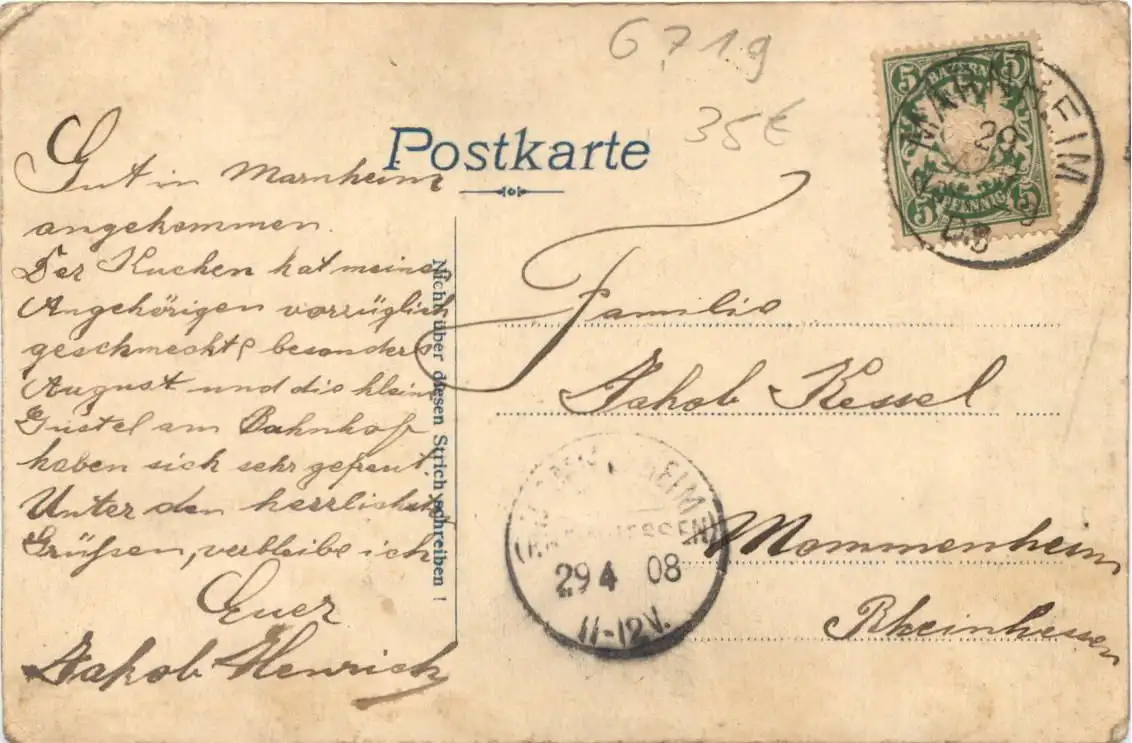 6719
35€
Postkarte
BAYERN
5 5
5 5
PFENNIG
MARNHEIM
29
08
Gut in Marnheim
angekommen.
Der Kuchen hat meinen
Angehörigen vorzüglich
geschmeckt, besonders
August und die kleine
Gustel am Bahnhof
haben sich sehr gefreut.
Unter den herrlichsten
Grüßen, verbleibe ich
Euer
Jakob Henrich
Nicht über diesen Strich schreiben!
Familie
Jakob Kessel
Mommenheim
Rheinhessen
29 4 08
11-12V.